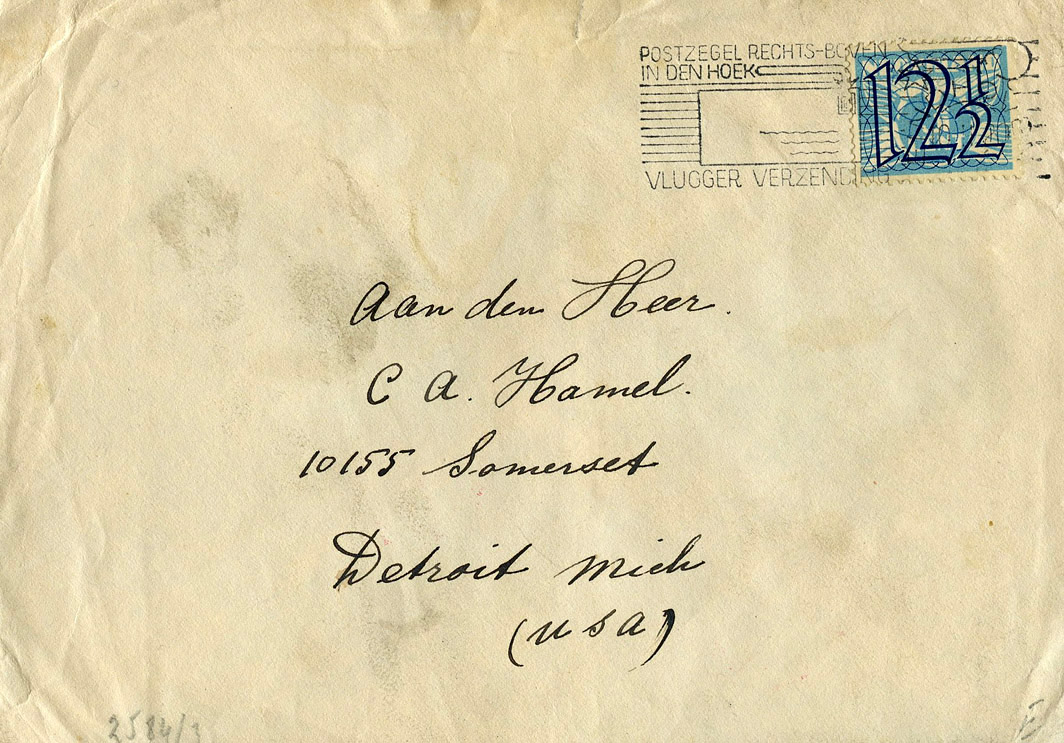 POSTZEGEL RECHTS-BOVEN
IN DEN HOEK
VLUGGER VERZEND
12½
Aan den Heer.
C A. Hamel.
10155 Somerset
Detroit Mich
(USA)
2584/3
E